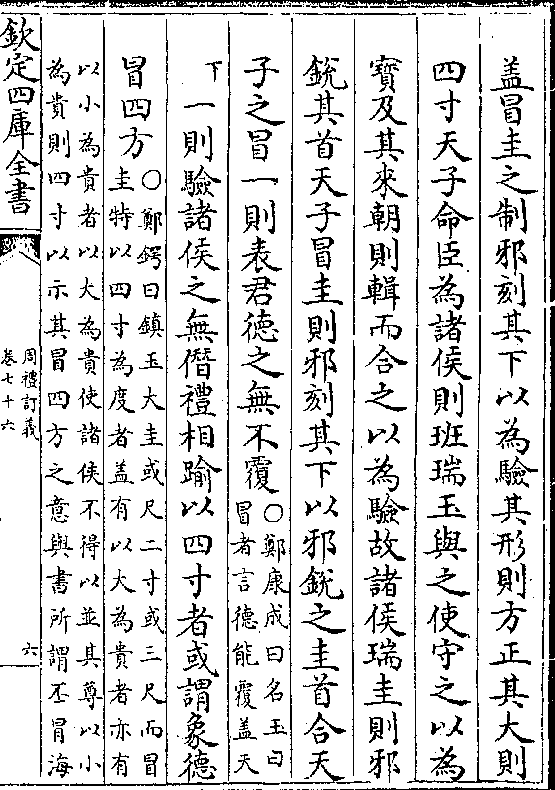 盖冒圭之制邪刻其下以為驗其形則方正其大則
四寸天子命臣為諸侯則班瑞玉與之使守之以為
寳及其來朝則輯而合之以為驗故諸侯瑞圭則邪
銳其首天子冒圭則邪刻其下以邪銳之圭首合天
子之冒一則表君徳之無不覆○鄭康成曰名玉曰
冒者言德能覆盖天
下一則驗諸侯之無僭禮相踰以四寸者或謂象德
冒四方○鄭鍔曰鎮玉大圭或尺二寸或三尺而冒
圭特以四寸為度者盖有以大為貴者亦有
以小為貴者以大為貴使諸侯不得以並其尊以小
為貴則四寸以示其冒四方之意與書所謂丕冒海
欽定四庫全書
周禮訂義
卷七十六
六